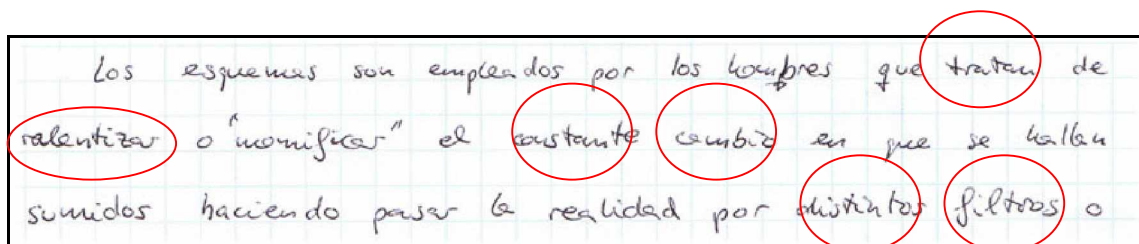 Los esquemas son empleados por los hombres que tratan de
ralentizar o "momificar" el constante cambio en que se hallan
sumidos haciendo pasar la realidad por distintos filtros o